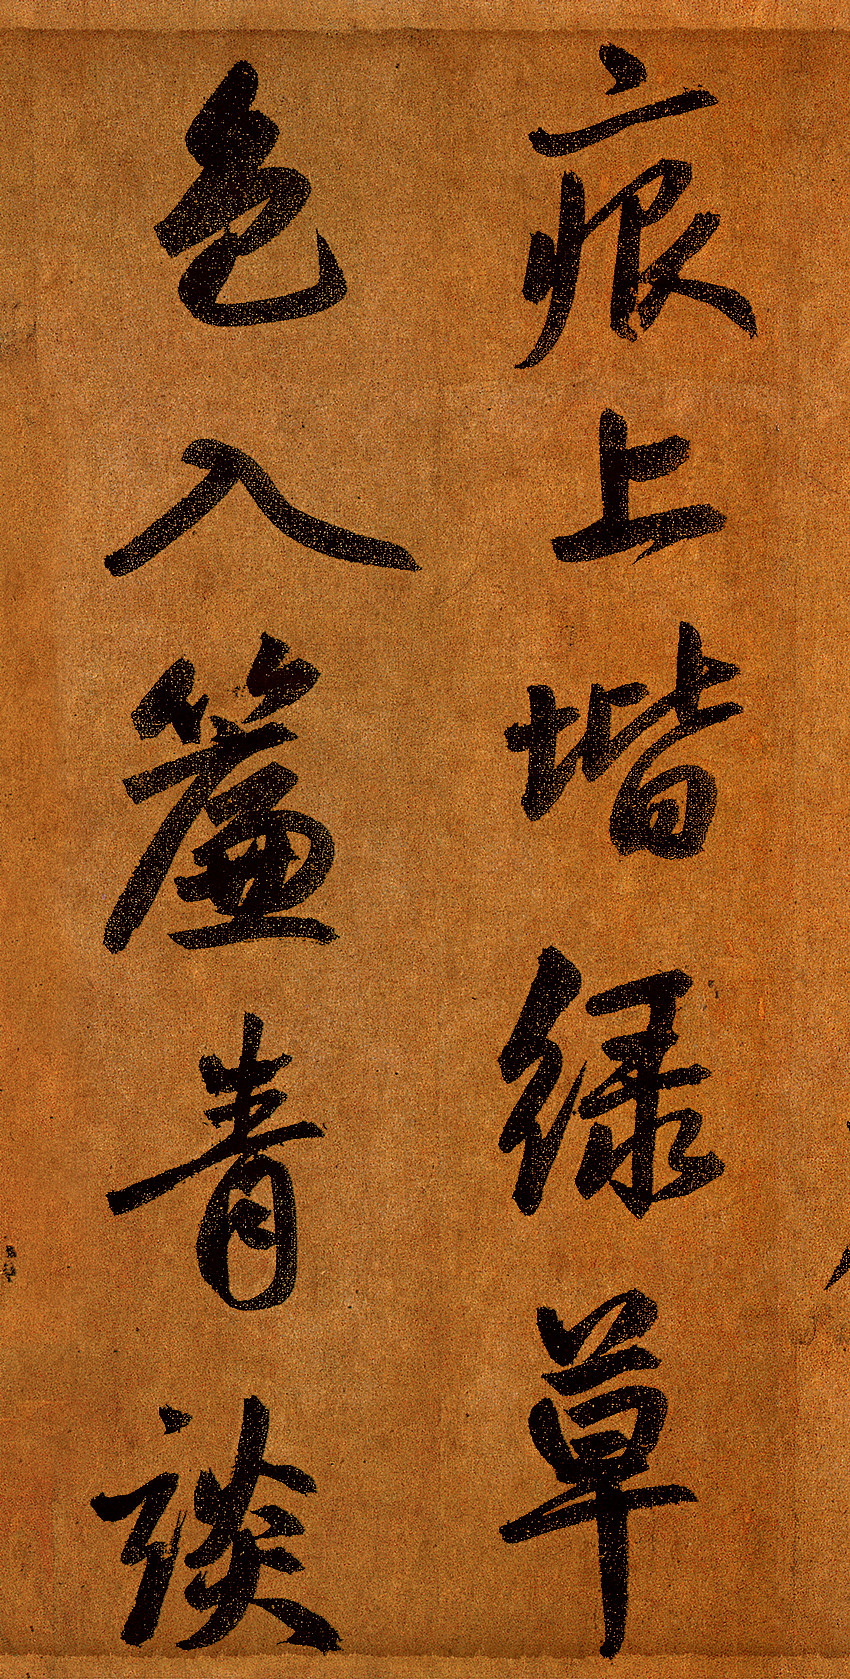 痕上堦緑草
色入簾青談